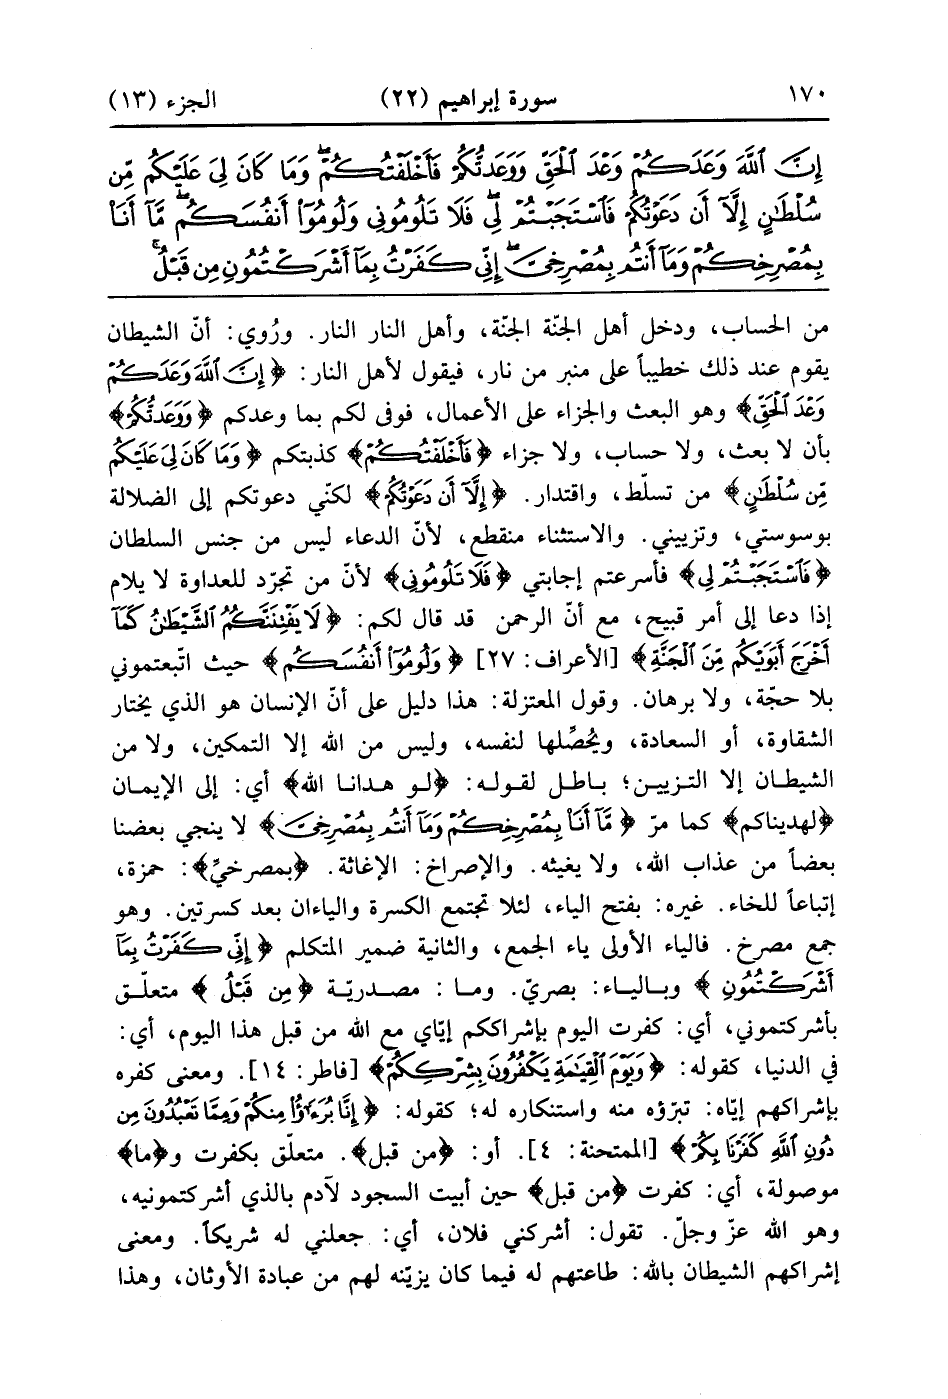 ١٧٠ سورة إبراهيم (٢٢) الجزء (١٣)
إِنَّ ٱللَّهَ وَعَدَكُمْ وَعْدَ ٱلْحَقِّ وَوَعَدتُّكُمْ فَأَخْلَفْتُكُمْ ۖ وَمَا كَانَ لِىَ عَلَيْكُم مِّن
سُلْطَٰنٍ إِلَّآ أَن دَعَوْتُكُمْ فَٱسْتَجَبْتُمْ لِى ۖ فَلَا تَلُومُونِى وَلُومُوٓا۟ أَنفُسَكُم ۖ مَّآ أَنَا۠
بِمُصْرِخِكُمْ وَمَآ أَنتُم بِمُصْرِخِىَّ ۖ إِنِّى كَفَرْتُ بِمَآ أَشْرَكْتُمُونِ مِن قَبْلُ ۗ
من الحساب، ودخل أهل الجنّة الجنّة، وأهل النار النار. ورُوي: أنّ الشيطان
يقوم عند ذلك خطيباً على منبر من نار، فيقول لأهل النار: ﴿إِنَّ ٱللَّهَ وَعَدَكُمْ
وَعْدَ ٱلْحَقِّ﴾ وهو البعث والجزاء على الأعمال، فوفى لكم بما وعدكم ﴿وَوَعَدتُّكُمْ﴾
بأن لا بعث، ولا حساب، ولا جزاء ﴿فَأَخْلَفْتُكُمْ﴾ كذبتكم ﴿وَمَا كَانَ لِىَ عَلَيْكُم
مِّن سُلْطَٰنٍ﴾ من تسلّط، واقتدار. ﴿إِلَّآ أَن دَعَوْتُكُمْ﴾ لكنّي دعوتكم إلى الضلالة
بوسوستي، وتزييني. والاستثناء منقطع، لأنّ الدعاء ليس من جنس السلطان
﴿فَٱسْتَجَبْتُمْ لِى﴾ فأسرعتم إجابتي ﴿فَلَا تَلُومُونِى﴾ لأنّ من تجرّد للعداوة لا يلام
إذا دعا إلى أمر قبيح، مع أنّ الرحمن قد قال لكم: ﴿لَا يَفْتِنَنَّكُمُ ٱلشَّيْطَٰنُ كَمَآ
أَخْرَجَ أَبَوَيْكُم مِّنَ ٱلْجَنَّةِ﴾ [الأعراف: ٢٧] ﴿وَلُومُوٓا۟ أَنفُسَكُم﴾ حيث اتّبعتموني
بلا حجّة، ولا برهان. وقول المعتزلة: هذا دليل على أنّ الإنسان هو الذي يختار
الشقاوة، أو السعادة، ويحُصِّلها لنفسه، وليس من الله إلا التمكين، ولا من
الشيطان إلا التزيين؛ باطل لقوله: ﴿لو هدانا الله﴾ أي: إلى الإيمان
﴿لهديناكم﴾ كما مرّ ﴿مَّآ أَنَا۠ بِمُصْرِخِكُمْ وَمَآ أَنتُم بِمُصْرِخِىَّ﴾ لا ينجي بعضنا
بعضاً من عذاب الله، ولا يغيثه. والإصراخ: الإغاثة. ﴿بمصرخيِّ﴾: حمزة،
إتباعاً للخاء. غيره: بفتح الياء، لئلا تجتمع الكسرة والياءان بعد كسرتين. وهو
جمع مصرخ. فالياء الأولى ياء الجمع، والثانية ضمير المتكلم ﴿إِنِّى كَفَرْتُ بِمَآ
أَشْرَكْتُمُونِ﴾ وبالياء: بصريّ. وما: مصدريّة ﴿مِن قَبْلُ﴾ متعلّق
بأشركتموني، أي: كفرت اليوم بإشراككم إيّاي مع الله من قبل هذا اليوم، أي:
في الدنيا، كقوله: ﴿وَيَوْمَ ٱلْقِيَٰمَةِ يَكْفُرُونَ بِشِرْكِكُمْ﴾ [فاطر: ١٤]. ومعنى كفره
بإشراكهم إيّاه: تبرّؤه منه واستنكاره له؛ كقوله: ﴿إِنَّا بُرَءَٰٓؤُا۟ مِنكُمْ وَمِمَّا تَعْبُدُونَ مِن
دُونِ ٱللَّهِ كَفَرْنَا بِكُمْ﴾ [الممتحنة: ٤]. أو: ﴿من قبل﴾. متعلّق بكفرت و﴿ما﴾
موصولة، أي: كفرت ﴿من قبل﴾ حين أبيت السجود لآدم بالذي أشركتمونيه،
وهو الله عزّ وجلّ. تقول: أشركني فلان، أي: جعلني له شريكاً. ومعنى
إشراكهم الشيطان بالله: طاعتهم له فيما كان يزيّنه لهم من عبادة الأوثان، وهذا